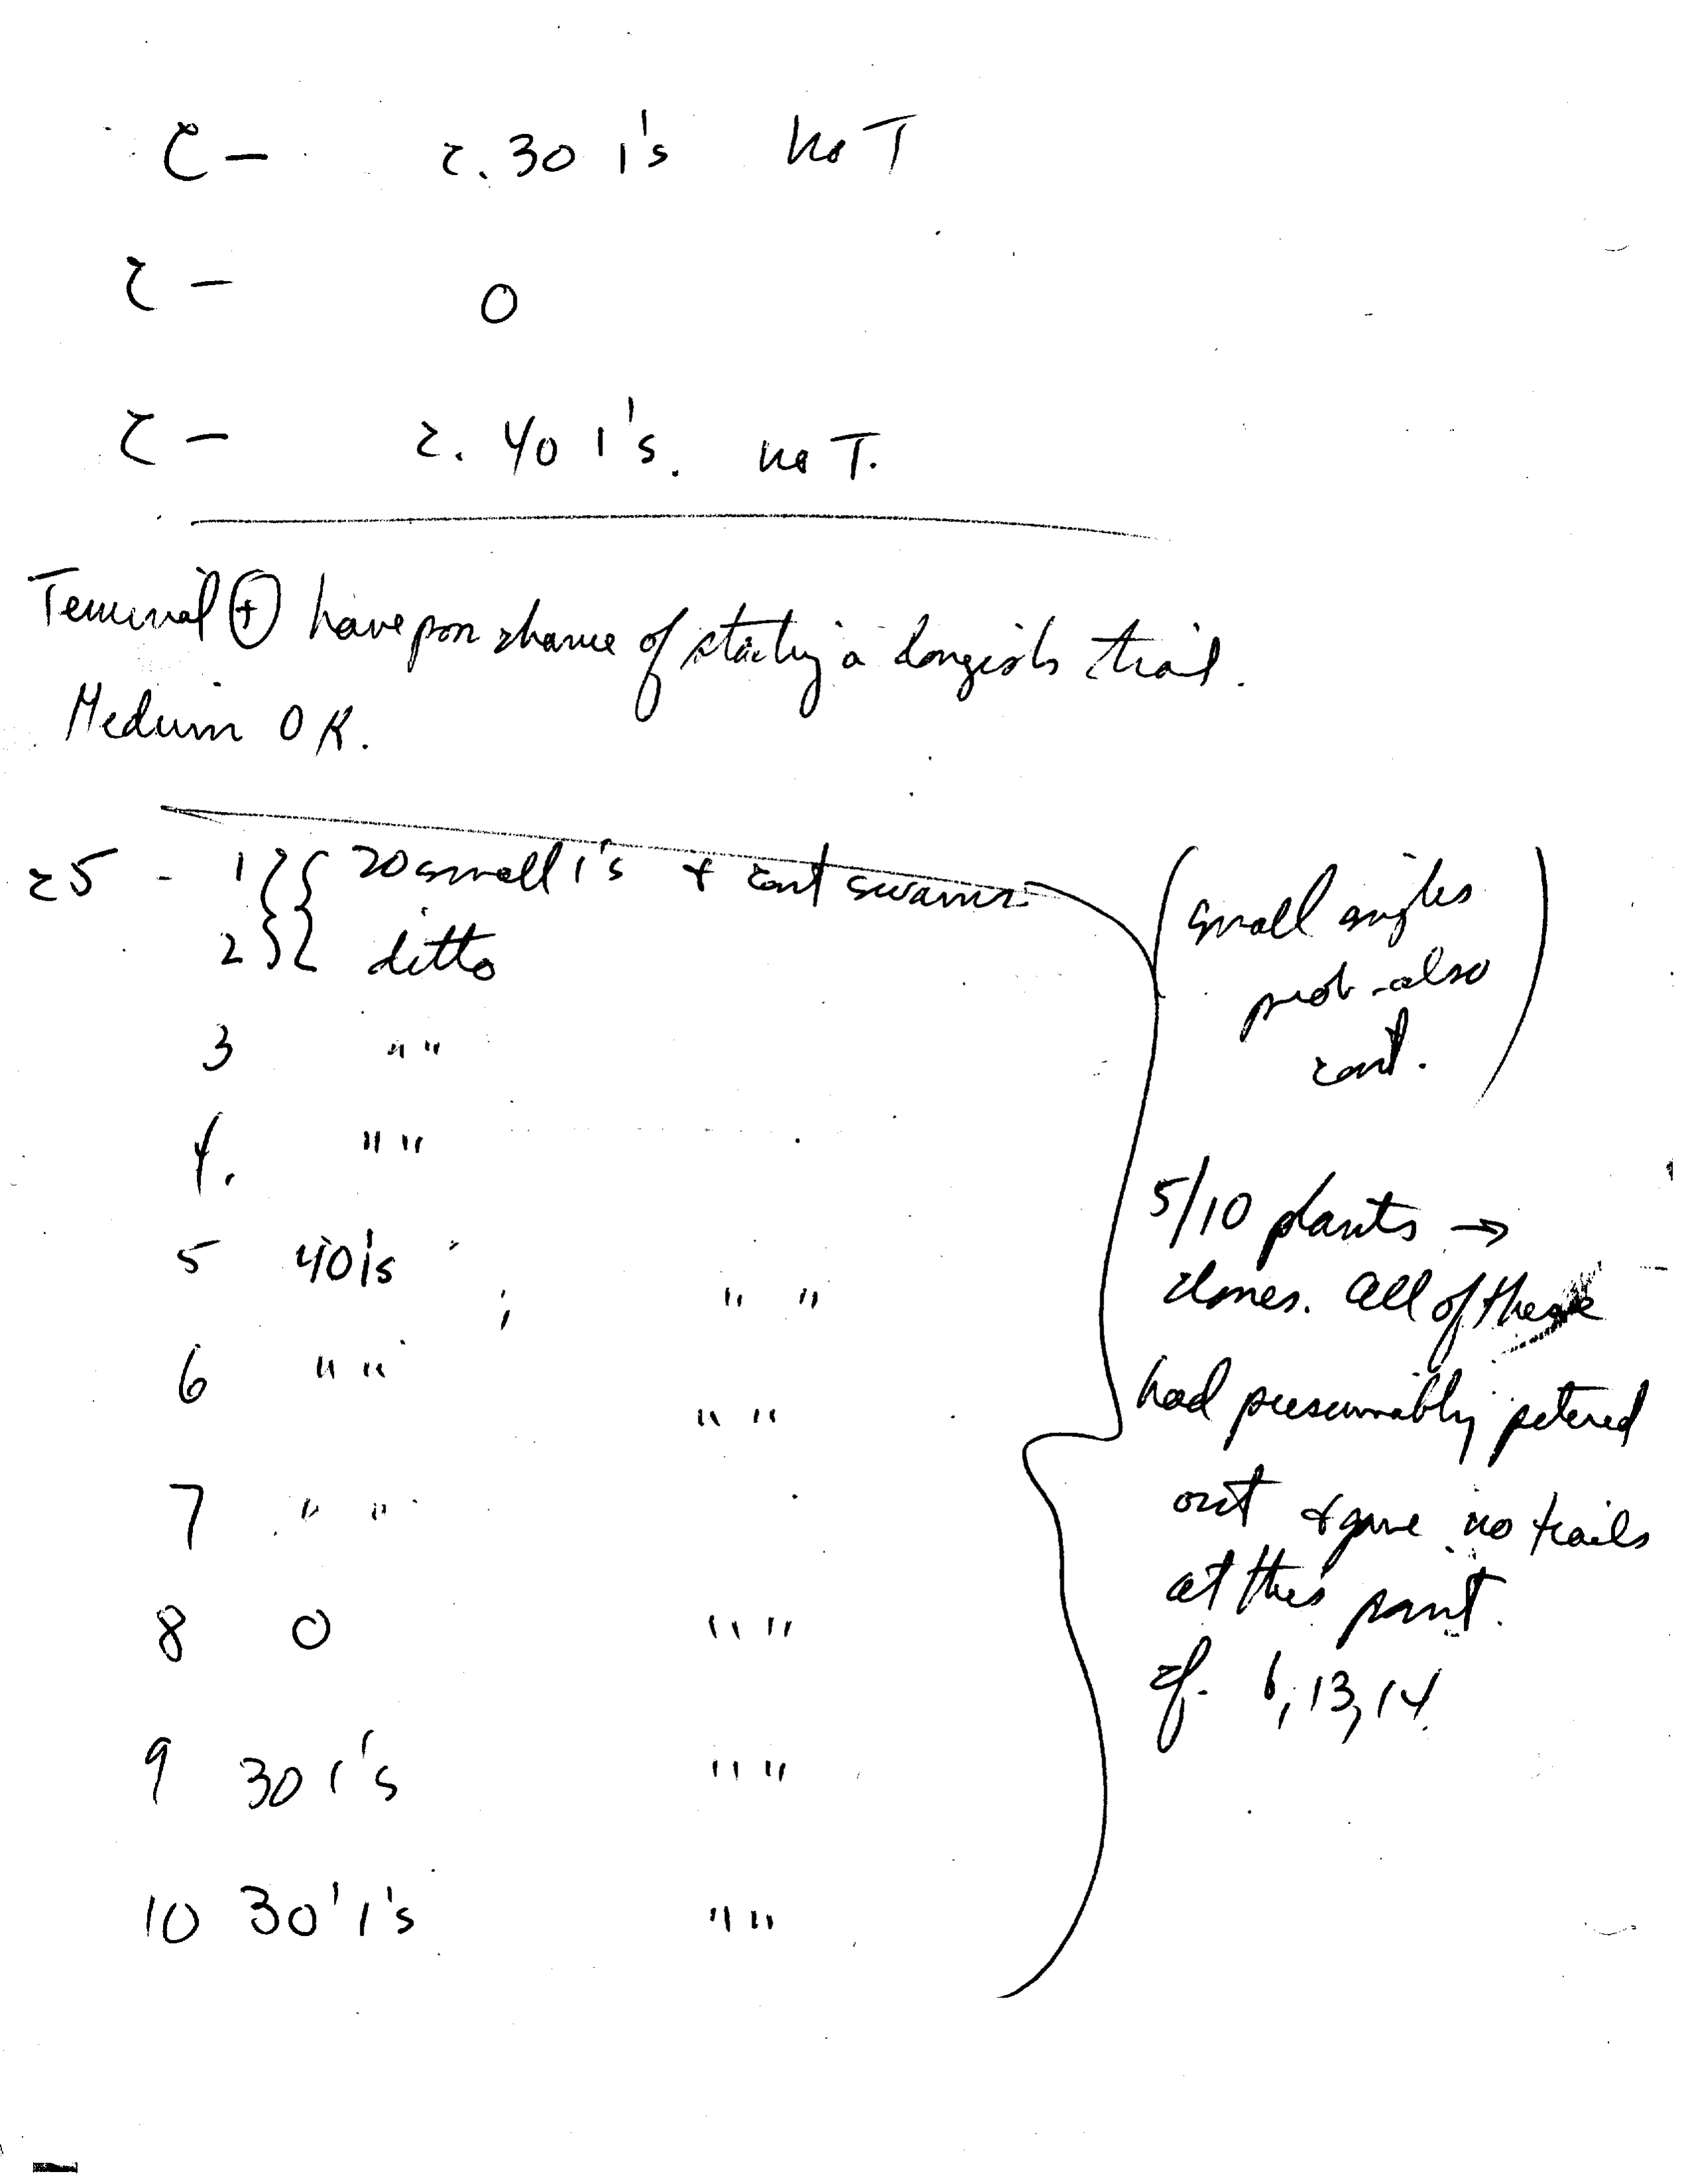 C - c. 30 1's no T
C - 0
C - c. 40 1's. no T.
Terminal ⊕ have poor chance of starting a longish trail.
Medium OK.
c5 - 1 20 small 1's + cont swarms
2 ditto
3 " "
4. " "
5 40 1's ; " "
6 " " " "
7 " "
8 0 " "
9 30 1's " "
10 30 1's " "
(small singles
prob. also
cont.)
5/10 plants →
clones. All of these
had presumably petered
out & gave no trails
at this point.
cf. 6, 13, 14